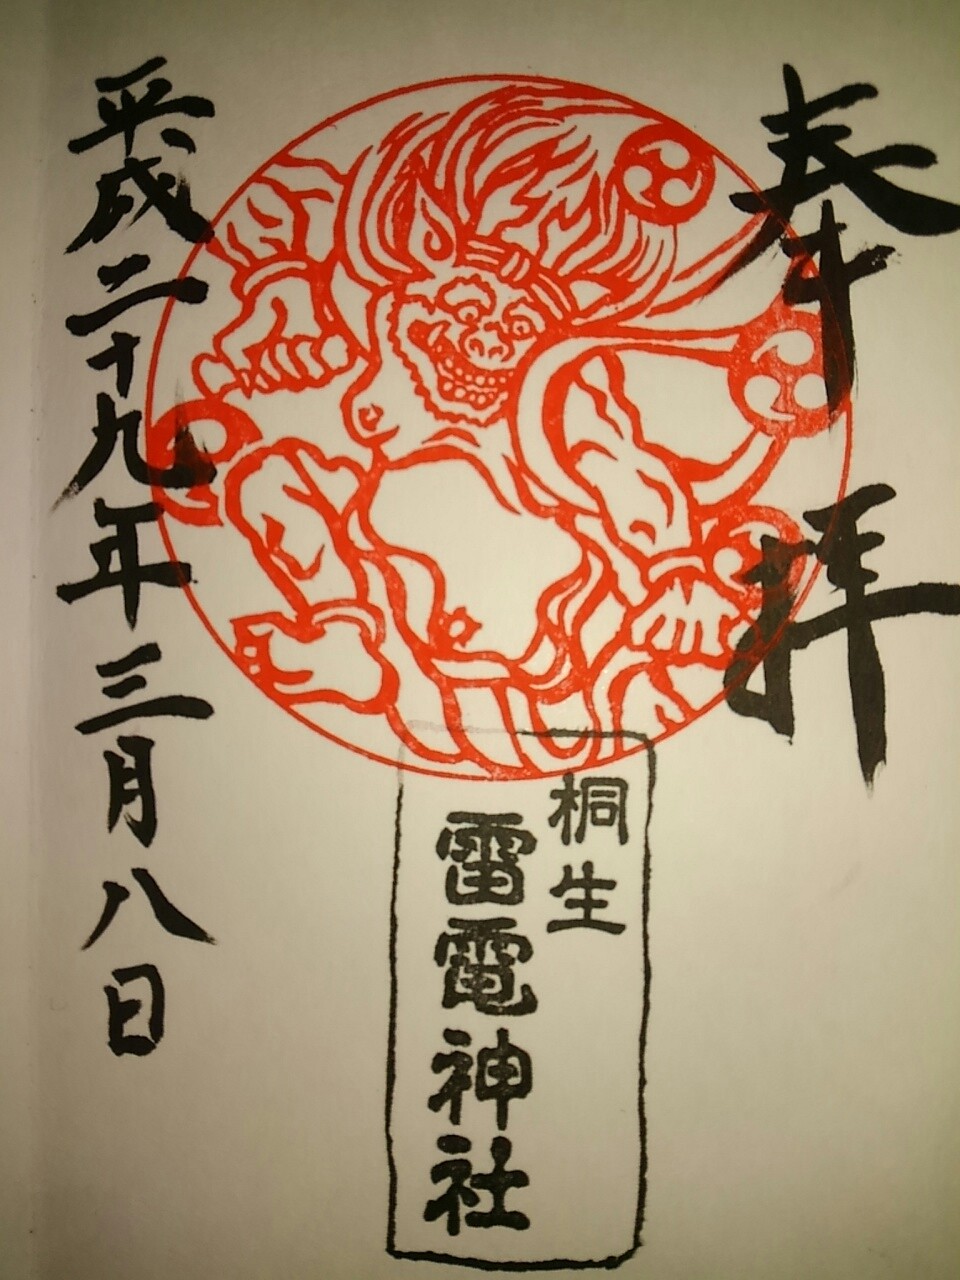 奉拝
桐生
雷電神社
平成二十九年三月八日